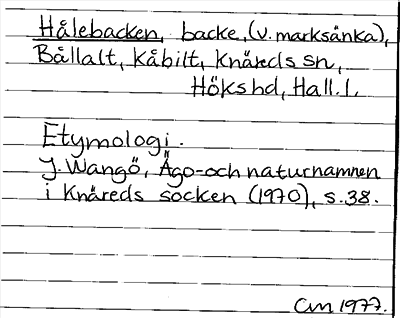 Hålebacken, backe, (v. marksänka),
Bållalt, Kåbilt, Knäreds sn,
Hökshd, Hall. l.
Etymologi.
J. Wangö, Ägo- och naturnamnen
i Knäreds socken (1970), s. 38.
CM 1977.